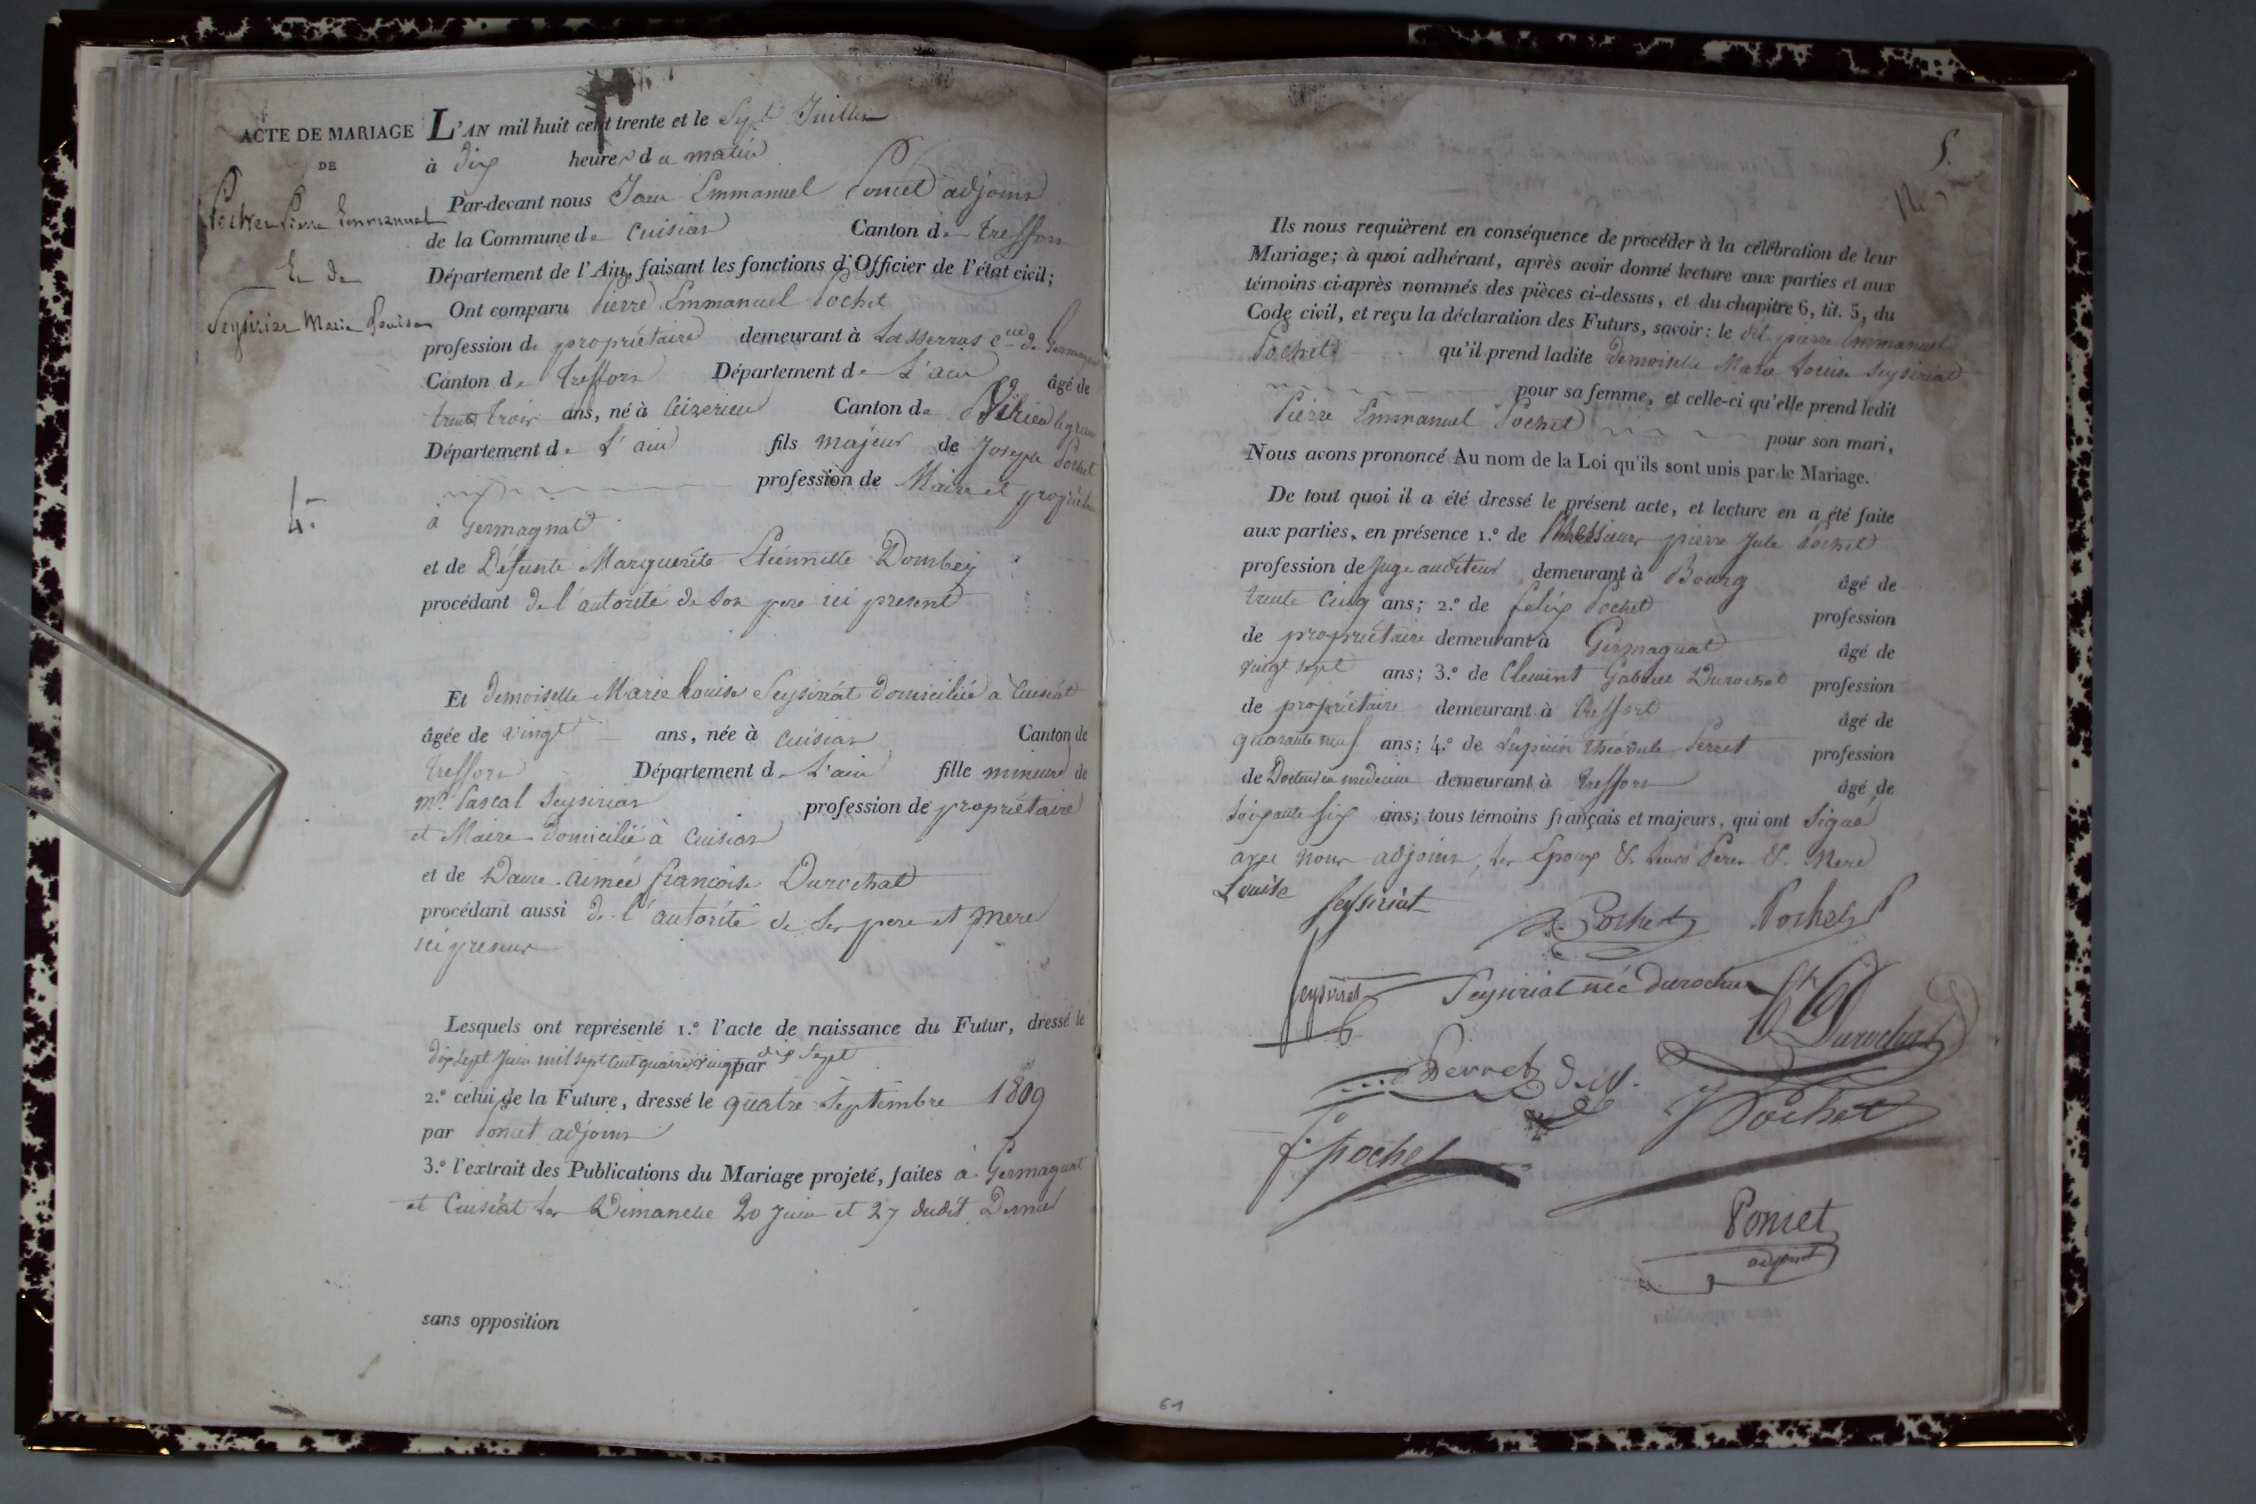 ACTE DE MARIAGE
DE
Pochet Pierre Emmanuel
Et de
Seysiriat Marie Louise
4.
L'AN mil huit cent trente et le Sept Juillet
à dix heures du matin
Par-devant nous Jean Emmanuel Poncet adjoint
de la Commune de Cuisiat Canton de Treffort
Département de l'Ain, faisant les fonctions d'Officier de l'état civil;
Ont comparu Pierre Emmanuel Pochet
profession de propriétaire demeurant à Lasserras Cne de Germagnat
Canton de Treffort Département de L'ain âgé de
trente trois ans, né à Ceizerieu Canton de Virieu legrand
Département de L'ain fils majeur de Joseph Pochet
profession de Maire et propriétaire
à Germagnat
et de Défunte Marguerite Etiennette Dombey
procédant de l'autorité de son pere ici present
Et demoiselle Marie Louise Seysiriat domiciliée à Cuisiat
âgée de vingt ans, née à Cuisiat Canton de
Treffort Département de L'ain fille mineure de
Mr Pascal Seysiriat profession de propriétaire
et Maire domicilié à Cuisiat
et de Dame aimée françoise Durochat
procédant aussi de l'autorité de ses pere et mere
ici presens
Lesquels ont représenté 1.º l'acte de naissance du Futur, dressé le
dix sept Juin mil sept cent quatre vingt dix sept par
2.º celui de la Future, dressé le quatre Septembre 1809
par Poncet adjoint
3.º l'extrait des Publications du Mariage projeté, faites à Germagnat
et Cuisiat les Dimanche 20 Juin et 27 dudit Dernier
sans opposition
5.
Ils nous requièrent en conséquence de procéder à la célébration de leur
Mariage; à quoi adhérant, après avoir donné lecture aux parties et aux
témoins ci-après nommés des pièces ci-dessus, et du chapitre 6, tit. 5, du
Code civil, et reçu la déclaration des Futurs, savoir: le dit pierre Emmanuel
Pochet qu'il prend ladite demoiselle Marie Louise Seysiriat
pour sa femme, et celle-ci qu'elle prend ledit
Pierre Emmanuel Pochet pour son mari,
Nous avons prononcé Au nom de la Loi qu'ils sont unis par le Mariage.
De tout quoi il a été dressé le présent acte, et lecture en a été faite
aux parties, en présence 1.º de Messieurs pierre Jule Pochet
profession de Juge auditeur demeurant à Bourg âgé de
trente cinq ans; 2.º de felix Pochet profession
de propriétaire demeurant à Germagnat âgé de
vingt sept ans; 3.º de Clement Gabriel Durochat profession
de propriétaire demeurant à Treffort âgé de
quarante neuf ans; 4.º de Lupicin théodule Perret profession
de Docteur en medecine demeurant à Treffort âgé de
soixante six ans; tous témoins français et majeurs, qui ont signé
avec nous adjoint, les Epoux & leurs Peres & Mere
Louise Seysiriat
Pochet Pochet
Seysiriat Seysiriat née durochat
Durochat
Perret d.m.
J Pochet
f. pochet
Poncet
adjoint
61